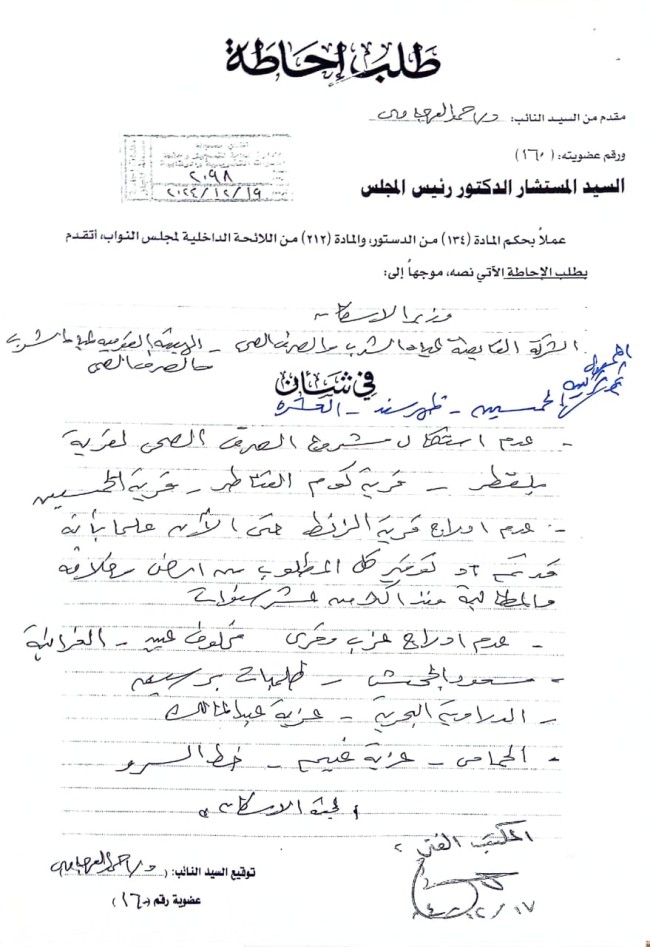 طلب إحاطة
مقدم من السيد النائب: د/ احمد العرجاوى
ورقم عضويته: (١٦٠)
٢٠٩٨
٢٠٢٢/١٢/١٩
السيد المستشار الدكتور رئيس المجلس
عملاً بحكم المادة (١٣٤) من الدستور، والمادة (٢١٢) من اللائحة الداخلية لمجلس النواب، أتقدم
بطلب الإحاطة الآتي نصه، موجهاً إلى:
وزير الاسكان
الشركة القابضة لمياه الشرب والصرف الصحى - الهيئة القومية لمياه الشرب
والصرف الصحى
في شأن
الخمسين - ظهر سند - العشرة
- عدم استكمال مشروع الصرف الصحى لقرية
بلقطر - قرية كوم القناطر - قرية الخمسين
- عدم ادراج قرية الزناط حتى الأن علما بأنه
قد تم توفير كل المطلوب من ارض وخلافه
والمطالبة منذ اكثر من عشر سنوات
- عدم ادراج عزب وقرى مخلوف عبيد -
- مسعود الجحش - طلمبات برسيق
- البحرية - عزبة عبد المالك
- الحمامى - عزبة غنيم - خط السرو
لجنة الاسكان
المكتب الفنى
توقيع السيد النائب: (د/ احمد العرجاوى)
عضوية رقم (١٦٠)